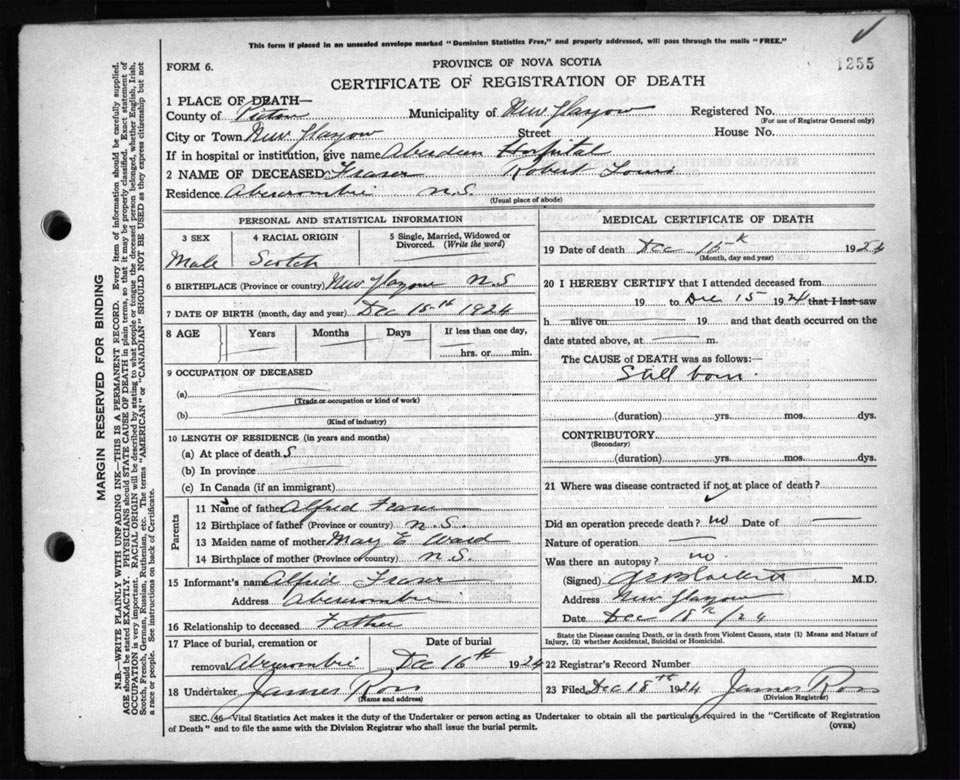 This form if placed in an unsealed envelope marked "Dominion Statistics Free," and properly addressed, will pass through the mails "FREE."
FORM 6.
PROVINCE OF NOVA SCOTIA
1255
CERTIFICATE OF REGISTRATION OF DEATH
1 PLACE OF DEATH—
County of Pictou Municipality of New Glasgow Registered No.
(For use of Registrar General only)
City or Town New Glasgow Street House No.
If in hospital or institution, give name Aberdeen Hospital
2 NAME OF DECEASED Fraser Robert Louis
Residence Abercrombie N.S.
(Usual place of abode)
PERSONAL AND STATISTICAL INFORMATION
3 SEX
Male
4 RACIAL ORIGIN
Scotch
5 Single, Married, Widowed or Divorced. (Write the word)
6 BIRTHPLACE (Province or country) New Glasgow N.S
7 DATE OF BIRTH (month, day and year) Dec 15th 1924
8 AGE Years Months Days If less than one day,
hrs. or min.
9 OCCUPATION OF DECEASED
(a)
(Trade or occupation or kind of work)
(b)
(Kind of industry)
10 LENGTH OF RESIDENCE (in years and months)
(a) At place of death
(b) In province
(c) In Canada (if an immigrant)
Parents
11 Name of father Alfred Fraser
12 Birthplace of father (Province or country) N.S.
13 Maiden name of mother May E Ward
14 Birthplace of mother (Province or country) N.S
15 Informant's name Alfred Fraser
Address Abercrombie
16 Relationship to deceased Father
17 Place of burial, cremation or removal Abercrombie
Date of burial Dec 16th 1924
18 Undertaker James Ross
(Name and address)
MEDICAL CERTIFICATE OF DEATH
19 Date of death Dec 15th 1924
(Month, day and year)
20 I HEREBY CERTIFY that I attended deceased from
19 to Dec 15 1924 that I last saw
h alive on 19 and that death occurred on the
date stated above, at m.
The CAUSE of DEATH was as follows:—
Still born.
(duration) yrs. mos. dys.
CONTRIBUTORY
(Secondary)
(duration) yrs. mos. dys.
21 Where was disease contracted if not at place of death?
Did an operation precede death? no Date of
Nature of operation
Was there an autopsy? no
(Signed) M.D.
Address New Glasgow
Date Dec 18th/24
State the Disease causing Death, or in death from Violent Causes, state (1) Means and Nature of
Injury, (2) whether Accidental, Suicidal or Homicidal.
22 Registrar's Record Number
23 Filed Dec 18th 1924 James Ross
(Division Registrar)
SEC. 46—Vital Statistics Act makes it the duty of the Undertaker or person acting as Undertaker to obtain all the particulars required in the "Certificate of Registration
of Death" and to file the same with the Division Registrar who shall issue the burial permit.
(OVER)
MARGIN RESERVED FOR BINDING
N.B.—WRITE PLAINLY WITH UNFADING INK—THIS IS A PERMANENT RECORD. Every item of information should be carefully supplied.
AGE should be stated EXACTLY. PHYSICIANS should STATE CAUSE OF DEATH in plain terms, so that it may be properly classified. Exact statement of
OCCUPATION is very important. RACIAL ORIGIN will be described by stating to what people or tongue the deceased person belonged, whether English, Irish,
Scotch, French, German, Russian, Ruthenian, etc. The terms "AMERICAN" or "CANADIAN" SHOULD NOT BE USED as they express citizenship but not
a race or people. See instructions on back of Certificate.